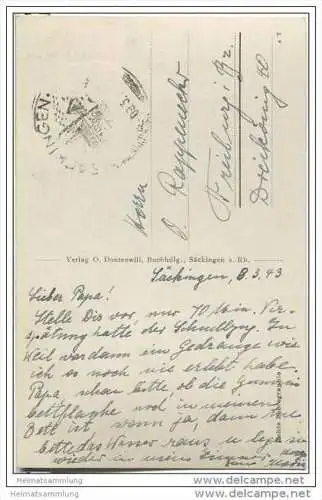 SÄCKINGEN.
Herrn
O. Rappenecker
Freiburg i/Br.
Dreikönig 40
Verlag O. Donzenwill, Buchhdlg., Säckingen a. Rh.
Säckingen, 8.3.43
Lieber Papa!
Stelle Dir vor nur 70 Min. Ver-
spätung hatte der Schnellzug. In
Weil war dann ein Gedränge wie
ich es noch nie erlebt habe.
Papa schau bitte, ob die Gummi
bettflasche noch in meinem
Bett ist, wenn ja, dann tue
bitte das Wasser raus u. lege sie
wieder in mein Zimmer
Heimatsammlung
www.heimatsammlung.de
Heimatsammlung